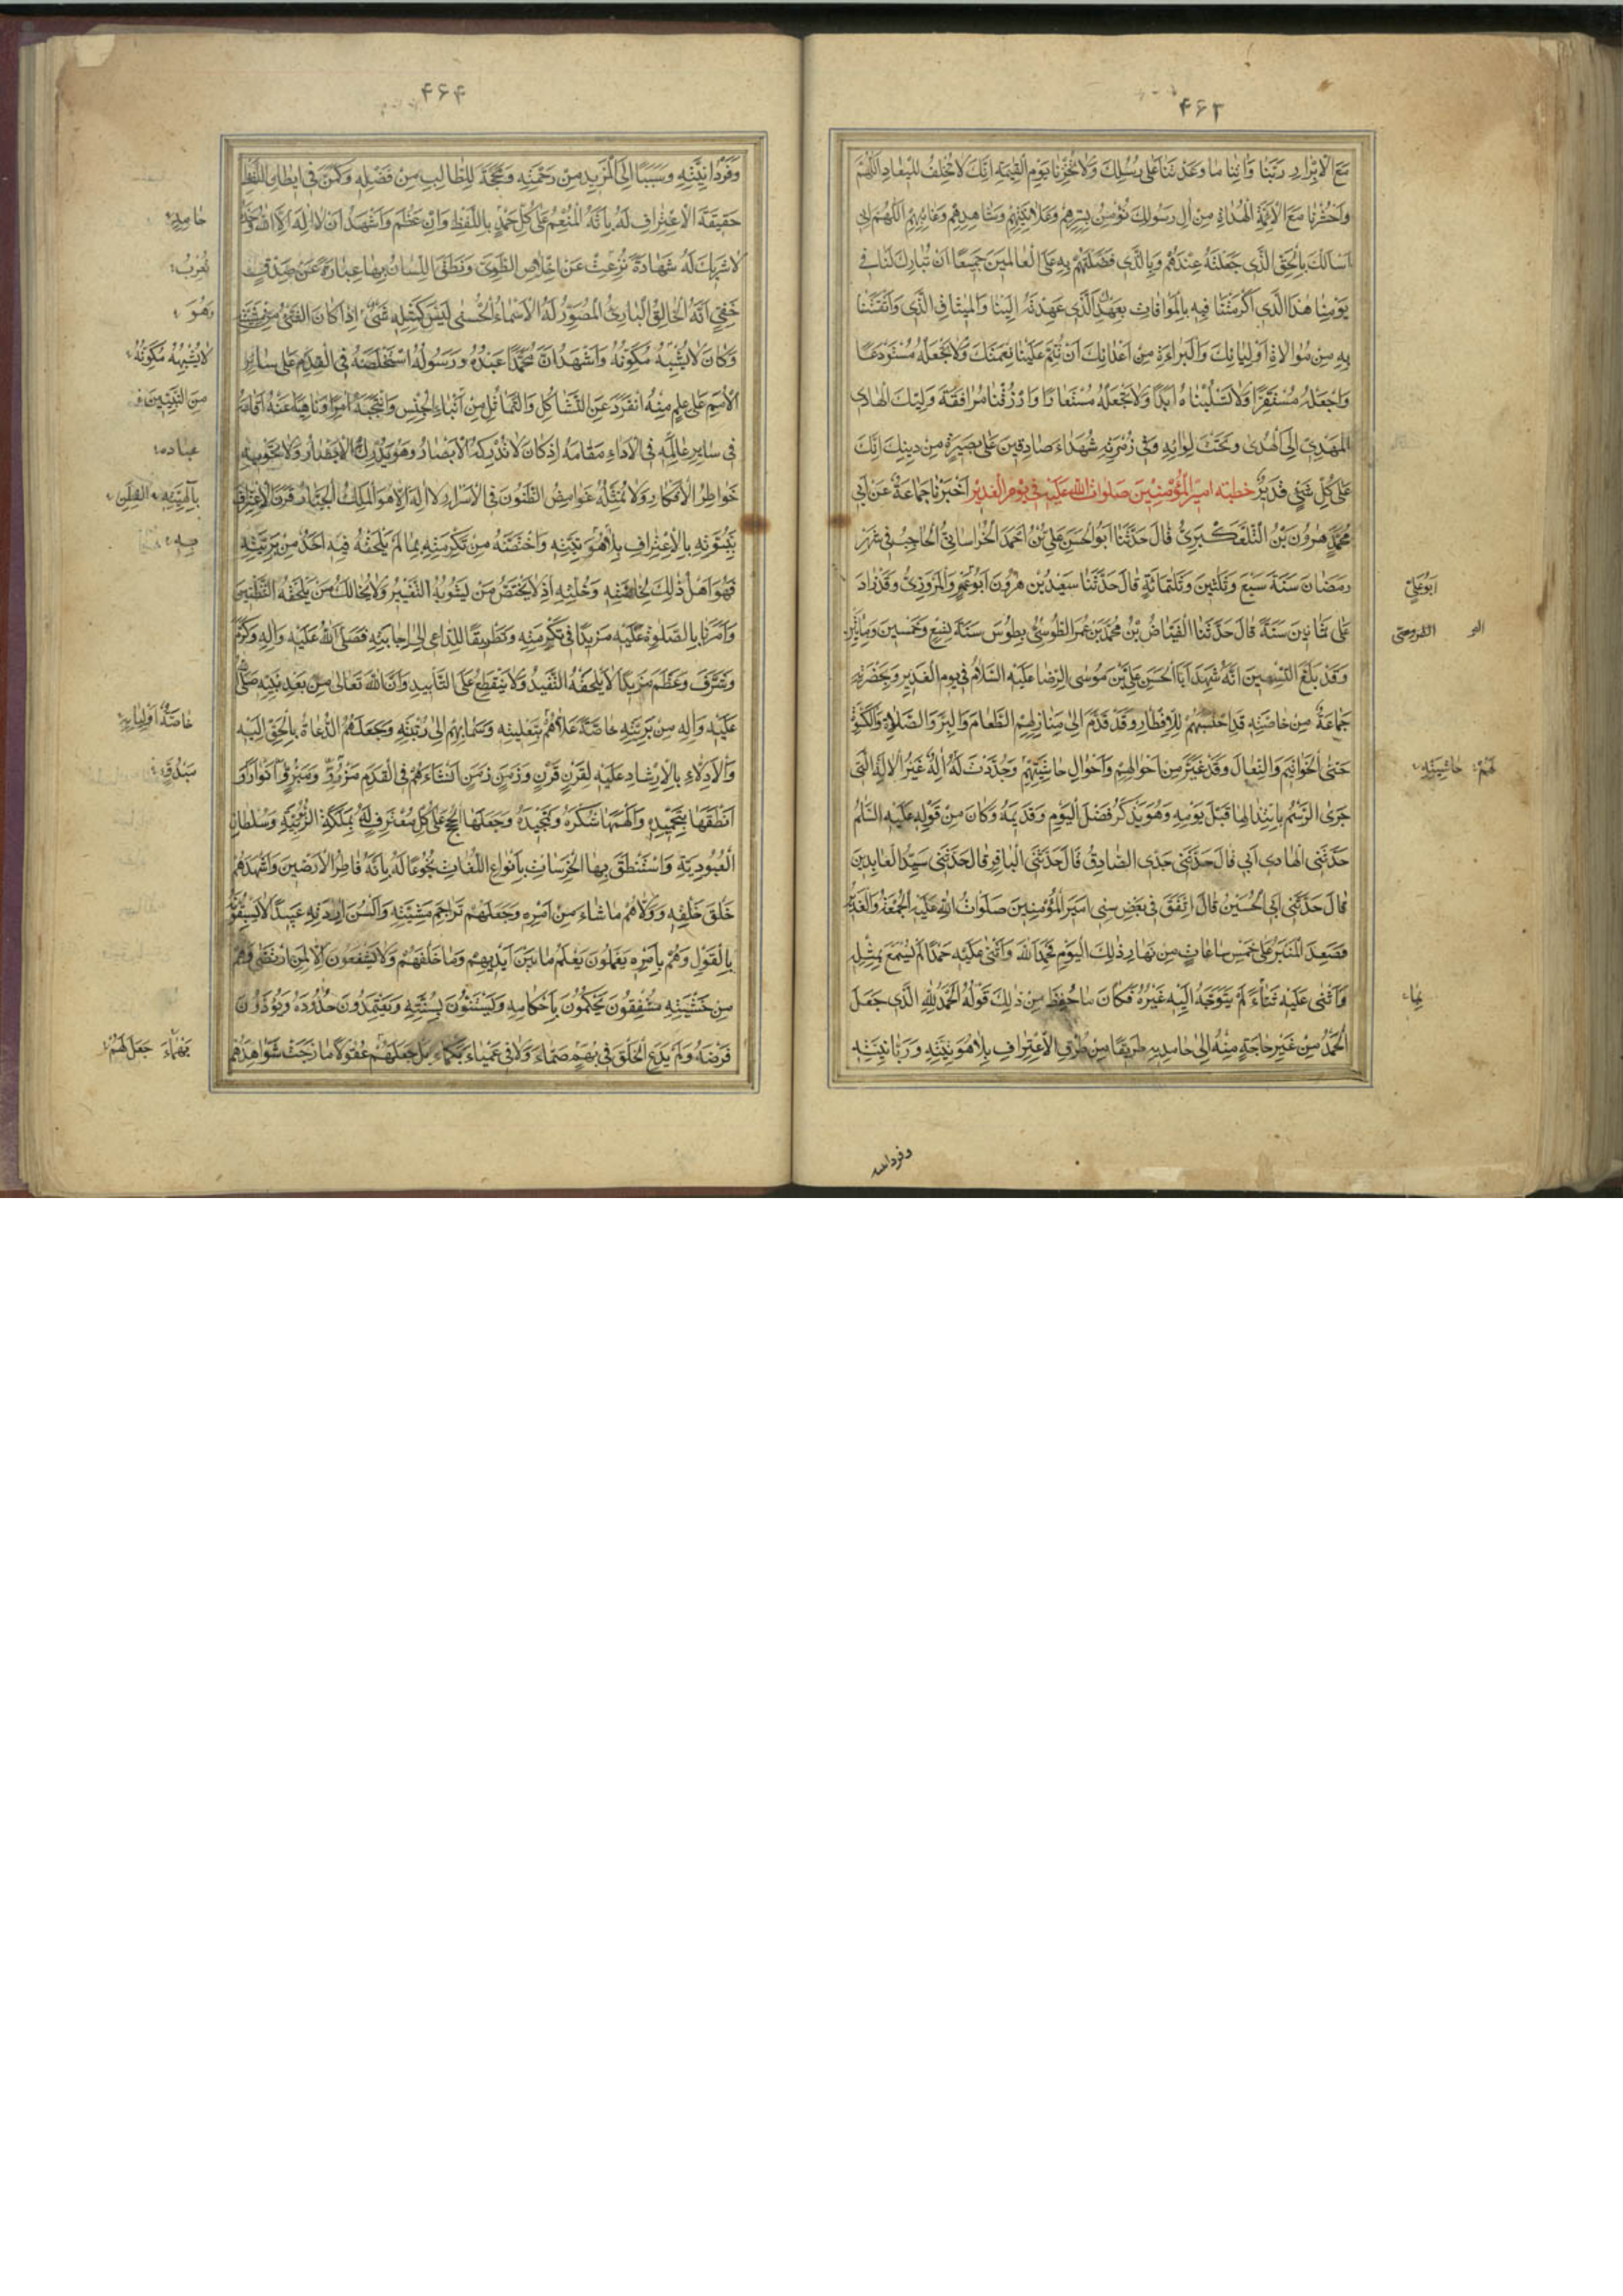 ۴۶۳
مَعَ الْاَبْرَارِ رَبَّنَا وَاٰتِنَا مَا وَعَدْتَنَا عَلٰى رُسُلِكَ وَلَا تُخْزِنَا يَوْمَ الْقِيٰمَةِ اِنَّكَ لَا تُخْلِفُ الْمِيْعَادَ اَللّٰهُمَّ
وَاحْشُرْنَا مَعَ الْاَئِمَّةِ الْهُدَاةِ مِنْ اٰلِ رَسُولِكَ نُؤْمِنُ بِسِرِّهِمْ وَعَلَانِيَتِهِمْ وَشَاهِدِهِمْ وَغَائِبِهِمْ اَللّٰهُمَّ اِنِّى
اَسْاَلُكَ بِالْحَقِّ الَّذِى جَعَلْتَهُ عِنْدَهُمْ وَبِالَّذِى فَضَّلْتَهُمْ بِهِ عَلَى الْعَالَمِينَ جَمِيعًا اَنْ تُبَارِكَ لَنَا فِى
يَوْمِنَا هٰذَا الَّذِى اَكْرَمْتَنَا فِيهِ بِالْمُوَافَاتِ بِعَهْدِكَ الَّذِى عَهِدْتَهُ اِلَيْنَا وَالْمِيثَاقِ الَّذِى وَاثَقْتَنَا
بِهِ مِنْ مُوَالَاةِ اَوْلِيَائِكَ وَالْبَرَاءَةِ مِنْ اَعْدَائِكَ اَنْ تُتِمَّ عَلَيْنَا نِعْمَتَكَ وَلَا تَجْعَلَهُ مُسْتَوْدَعًا
وَاجْعَلْهُ مُسْتَقَرًّا وَلَا تَسْلُبْنَاهُ اَبَدًا وَلَا تَجْعَلْهُ مُسْتَعَارًا وَارْزُقْنَا مُرَافَقَةَ وَلِيِّكَ الْهَادِى
الْمَهْدِىِّ اِلَى الْهُدٰى وَتَحْتَ لِوَائِهِ وَفِى زُمْرَتِهِ شُهَدَاءَ صَادِقِينَ عَلٰى بَصِيرَةٍ مِنْ دِينِكَ اِنَّكَ
عَلٰى كُلِّ شَىْءٍ قَدِيرٌ خطبة امير المؤمنين صلوات الله عليه فى يوم الغدير اَخْبَرَنَا جَمَاعَةٌ عَنْ اَبِى
مُحَمَّدٍ هٰرُونَ بْنِ التَّلَّعُكْبَرِىِّ قَالَ حَدَّثَنَا اَبُو الْحَسَنِ عَلِىُّ بْنُ اَحْمَدَ الْخُرَاسَانِىُّ الْحَاجِبُ فِى شَهْرِ
رَمَضَانَ سَنَةَ سَبْعٍ وَثَلٰثِينَ وَثَلٰثِمَائَةٍ قَالَ حَدَّثَنَا سَعِيدُ بْنُ هٰرُونَ اَبُو عُمَرٍ وَالْمَرْوَزِىُّ وَقَدْ زَادَ
ابوعلىّ
عَلٰى ثَمَانِينَ سَنَةً قَالَ حَدَّثَنَا الْفَيَّاضُ بْنُ مُحَمَّدِ بْنِ عُمَرَ الطُّوسِىُّ بِطُوسَ سَنَةَ تِسْعٍ وَخَمْسِينَ وَمِائَتَيْنِ
وَقَدْ بَلَغَ التِّسْعِينَ اَنَّهُ شَهِدَ اَبَا الْحَسَنِ عَلِىَّ بْنَ مُوسَى الرِّضَا عَلَيْهِ السَّلَامُ فِى يَوْمِ الْغَدِيرِ وَبِحَضْرَتِهِ
جَمَاعَةٌ مِنْ خَاصَّتِهِ قَدِ احْتَبَسَهُمْ لِلْاِفْطَارِ وَقَدْ قَدَّمَ اِلٰى مَنَازِلِهِمُ الطَّعَامَ وَالْبِرَّ وَالصَّلَاةِ وَالْكِسْوَةَ
حَتَّى الْخَوَاتِيمَ وَالنِّعَالَ وَقَدْ غَيَّرَ مِنْ اَحْوَالِهِمْ وَاَحْوَالِ حَاشِيَتِهِمْ وَجُدِّدَتْ لَهُ اٰلَةٌ غَيْرُ الْاٰلَةِ الَّتِى
لَهُمْ حَاشِيَتِهِ
جَرَى الرَّسْمُ بِابْتِذَالِهَا قَبْلَ يَوْمِهِ وَهُوَ يَذْكُرُ فَضْلَ الْيَوْمِ وَقَدِيمَهُ وَكَانَ مِنْ قَوْلِهِ عَلَيْهِ السَّلَامُ
حَدَّثَنِى الْهَادِى اَبِى قَالَ حَدَّثَنِى جَدِّى الصَّادِقُ قَالَ حَدَّثَنِى الْبَاقِرُ قَالَ حَدَّثَنِى سَيِّدُ الْعَابِدِينَ
قَالَ حَدَّثَنِى اَبِى الْحُسَيْنُ قَالَ اتَّفَقَ فِى بَعْضِ سِنِى اَمِيرِ الْمُؤْمِنِينَ صَلَوَاتُ اللهِ عَلَيْهِ الْجُمُعَةُ وَالْغَدِيرُ
فَصَعِدَ الْمِنْبَرَ عَلٰى خَمْسِ سَاعَاتٍ مِنْ نَهَارِ ذٰلِكَ الْيَوْمِ فَحَمِدَ اللهَ وَاَثْنٰى عَلَيْهِ حَمْدًا لَمْ يُسْمَعْ بِمِثْلِهِ
وَاَثْنٰى عَلَيْهِ ثَنَاءً لَمْ يَتَوَجَّهْ اِلَيْهِ غَيْرُهُ فَكَانَ مَا حُفِظَ مِنْ ذٰلِكَ قَوْلُهُ الْحَمْدُ لِلّٰهِ الَّذِى جَعَلَ
الْحَمْدَ مِنْ غَيْرِ حَاجَةٍ مِنْهُ اِلٰى حَامِدِيهِ طَرِيقًا مِنْ طُرُقِ الْاِعْتِرَافِ بِلَاهُوتِيَّتِهِ وَرَبَّانِيَّتِهِ
۴۶۴
وَفَرْدَانِيَّتِهِ وَسَبَبًا اِلَى الْمَزِيدِ مِنْ رَحْمَتِهِ وَمَحَجَّةً لِلطَّالِبِ مِنْ فَضْلِهِ وَكَمَّنَ فِى اِبْطَانِ اللَّفْظِ
حَقِيقَةَ الْاِعْتِرَافِ لَهُ بِاَنَّهُ الْمُنْعِمُ عَلٰى كُلِّ حَمْدٍ بِاللَّفْظِ وَاِنْ عَظُمَ وَاَشْهَدُ اَنْ لَا اِلٰهَ اِلَّا اللهُ وَحْدَهُ
لَا شَرِيكَ لَهُ شَهَادَةً نُزِعَتْ عَنْ اِخْلَاصِ الطَّوِىِّ وَنَطَقَ اللِّسَانُ بِهَا عِبَارَةً عَنْ صِدْقٍ
خَفِىٍّ اَنَّهُ الْخَالِقُ الْبَارِئُ الْمُصَوِّرُ لَهُ الْاَسْمَاءُ الْحُسْنٰى لَيْسَ كَمِثْلِهِ شَىْءٌ اِذَا كَانَ الشَّىْءُ مِنْ مَشِيَّتِهِ
وَهُوَ
وَكَانَ لَا يُشْبِهُ مُكَوِّنَهُ وَاَشْهَدُ اَنَّ مُحَمَّدًا عَبْدُهُ وَرَسُولُهُ اسْتَخْلَصَهُ فِى الْقِدَمِ عَلٰى سَائِرِ
لَا يُشْبِهُهُ مُكَوَّنُهُ
الْاُمَمِ عَلٰى عِلْمٍ مِنْهُ انْفَرَدَ عَنِ التَّشَاكُلِ وَالتَّمَاثُلِ مِنْ اَبْنَاءِ الْجِنْسِ وَانْتَجَبَهُ اٰمِرًا وَنَاهِيًا عَنْهُ اَقَامَهُ
مِنَ النَّبِيِّينَ
فِى سَايِرِ عَالَمِهِ فِى الْاَدَاءِ مَقَامَهُ اِذْ كَانَ لَا تُدْرِكُهُ الْاَبْصَارُ وَهُوَ يُدْرِكُ الْاَبْصَارَ وَلَا تَحْوِيهِ
عِبَادِهِ
خَوَاطِرُ الْاَفْكَارِ وَلَا تُمَثِّلُهُ غَوَامِضُ الظُّنُونِ فِى الْاَسْرَارِ لَا اِلٰهَ اِلَّا هُوَ الْمَلِكُ الْجَبَّارُ قَرَنَ الْاِعْتِرَافَ
بِنُبُوَّتِهِ بِالْاِعْتِرَافِ بِلَاهُوتِيَّتِهِ وَاخْتَصَّهُ مِنْ تَكْرِمَتِهِ بِمَا لَمْ يَلْحَقْهُ فِيهِ اَحَدٌ مِنْ بَرِيَّتِهِ
فَهُوَ اَهْلُ ذٰلِكَ بِخَاصَّتِهِ وَخُلَّتِهِ اِذْ لَا يَخْتَصُّ مَنْ يَشُوبُهُ التَّغْيِيرُ وَلَا يُخَالِلُ مَنْ يَلْحَقُهُ التَّظْنِينُ
وَاَمَرَ بِالصَّلٰوةِ عَلَيْهِ مَزِيدًا فِى تَكْرِمَتِهِ وَتَطْرِيقًا لِلدَّاعِى اِلٰى اِجَابَتِهِ فَصَلَّى اللهُ عَلَيْهِ وَاٰلِهِ وَكَرَّمَ
وَشَرَّفَ وَعَظَّمَ مَزِيدًا لَا يَلْحَقُهُ التَّنْفِيدُ وَلَا يَنْقَطِعُ عَلَى التَّأْبِيدِ وَاَنَّ اللهَ تَعَالٰى مِنْ بَعْدِ نَبِيِّهِ صَلَّى اللهُ
عَلَيْهِ وَاٰلِهِ مِنْ بَرِيَّتِهِ خَاصَّةً عَلَّاهُمْ بِتَعْلِيَتِهِ وَسَمَا بِهِمْ اِلٰى رُتْبَتِهِ وَجَعَلَهُمُ الدُّعَاةَ بِالْحَقِّ اِلَيْهِ
وَالْاَدِلَّاءَ بِالْاِرْشَادِ عَلَيْهِ لِقَرْنٍ قَرْنٍ وَزَمَنٍ زَمَنٍ اَنْشَأَهُمْ فِى الْقِدَمِ مَذْرُوٍّ وَمَبْرُوٍّ اَنْوَارًا
اَنْطَقَهَا بِتَحْمِيدِهِ وَاَلْهَمَهَا شُكْرَهُ وَتَمْجِيدَهُ وَجَعَلَهَا الْحُجَجَ عَلٰى كُلِّ مُعْتَرِفٍ لَهُ بِمَلَكَةِ الرُّبُوبِيَّةِ وَسُلْطَانِ
الْعُبُودِيَّةِ وَاسْتَنْطَقَ بِهَا الْخَرَسَاتِ بِاَنْوَاعِ اللُّغَاتِ بُخُوعًا لَهُ بِاَنَّهُ فَاطِرُ الْاَرَضِينَ وَاَشْهَدَهُمْ
خَلْقَ خَلْقِهِ وَوَلَّاهُمْ مَا شَاءَ مِنْ اَمْرِهِ وَجَعَلَهُمْ تَرَاجِمَ مَشِيَّتِهِ وَاَلْسُنَ اِرَادَتِهِ عَبِيدًا لَا يَسْبِقُونَهُ
بِالْقَوْلِ وَهُمْ بِاَمْرِهِ يَعْمَلُونَ يَعْلَمُ مَا بَيْنَ اَيْدِيهِمْ وَمَا خَلْفَهُمْ وَلَا يَشْفَعُونَ اِلَّا لِمَنِ ارْتَضٰى وَهُمْ
مِنْ خَشْيَتِهِ مُشْفِقُونَ يَحْكُمُونَ بِاَحْكَامِهِ وَيَسْتَنُّونَ بِسُنَّتِهِ وَيَعْتَمِدُونَ حُدُودَهُ وَيُؤَدُّونَ
فَرْضَهُ وَلَمْ يَدَعِ الْخَلْقَ فِى بُهَمٍ صَمَّاءَ وَلَا فِى عَمْيَاءَ بَكْمَاءَ بَلْ جَعَلَ لَهُمْ عُقُولًا مَازَجَتْ شَوَاهِدَهُمْ
جَعَلَ لَهُمْ